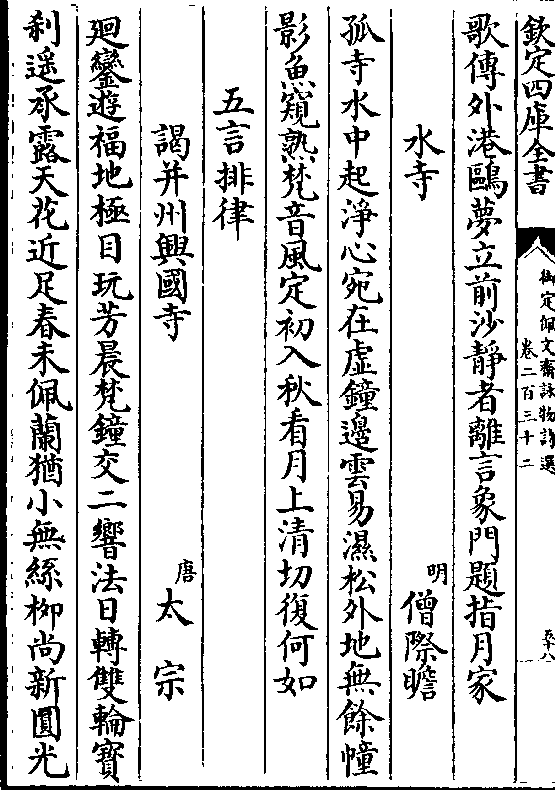 欽定四庫全書
御定佩文齋詠物詩選
卷二百三十二
歌傳外港鷗夢立前沙靜者離言象門題指月家
水寺
明
僧際瞻
孤寺水中起淨心宛在虛鐘邊雲易濕松外地無餘幢
影魚窺熟梵音風定初入秋看月上清切復何如
五言排律
謁并州興國寺
唐
太宗
廻鑾遊福地極目玩芳晨梵鐘交二響法日轉雙輪寶
刹遥承露天花近足春未佩蘭猶小無絲柳尚新圓光